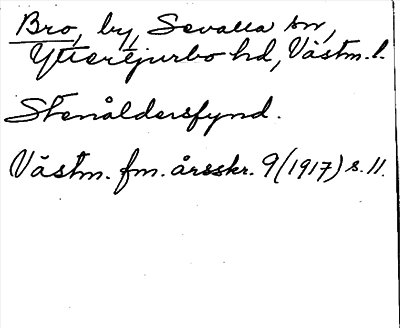 Bro, by, Sevalla sn,
Yttertjurbo hd, Västm. l.
Stenåldersfynd.
Västm. fm. årsskr. 9 (1917) s. 11.